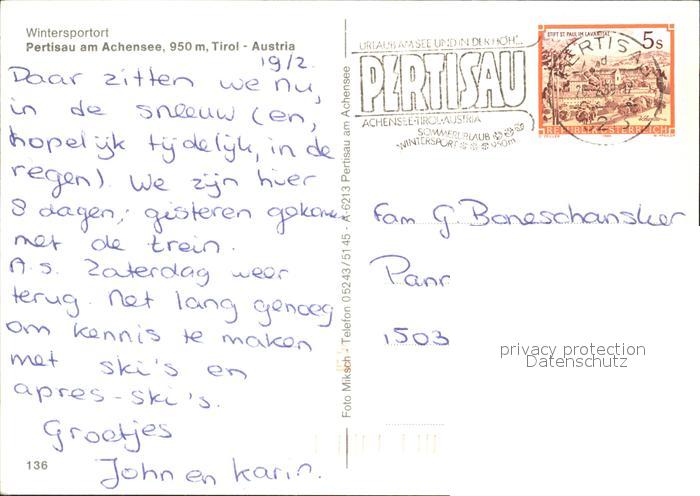 Wintersportort
Pertisau am Achensee, 950 m, Tirol - Austria
19/2.
Daar zitten we nu,
in de sneeuw (en,
hopelijk tijdelijk, in de
regen). We zijn hier
8 dagen, gisteren gekomen
met de trein.
A.s. Zaterdag weer
terug. Net lang genoeg
om kennis te maken
met ski's en
apres-ski's.
Groetjes
John en Karin.
136
Foto Miksch - Telefon 05243/5145 - A-6213 Pertisau am Achensee
URLAUB AM SEE UND IN DER HÖH'...
PERTISAU
ACHENSEE-TIROL-AUSTRIA
SOMMERURLAUB
WINTERSPORT 950m
STIFT ST. PAUL IM LAVANTTAL
5s
PERTISAU
REPUBLIK ÖSTERREICH
Fam G. Boneschansker
Panr
1503
privacy protection
Datenschutz